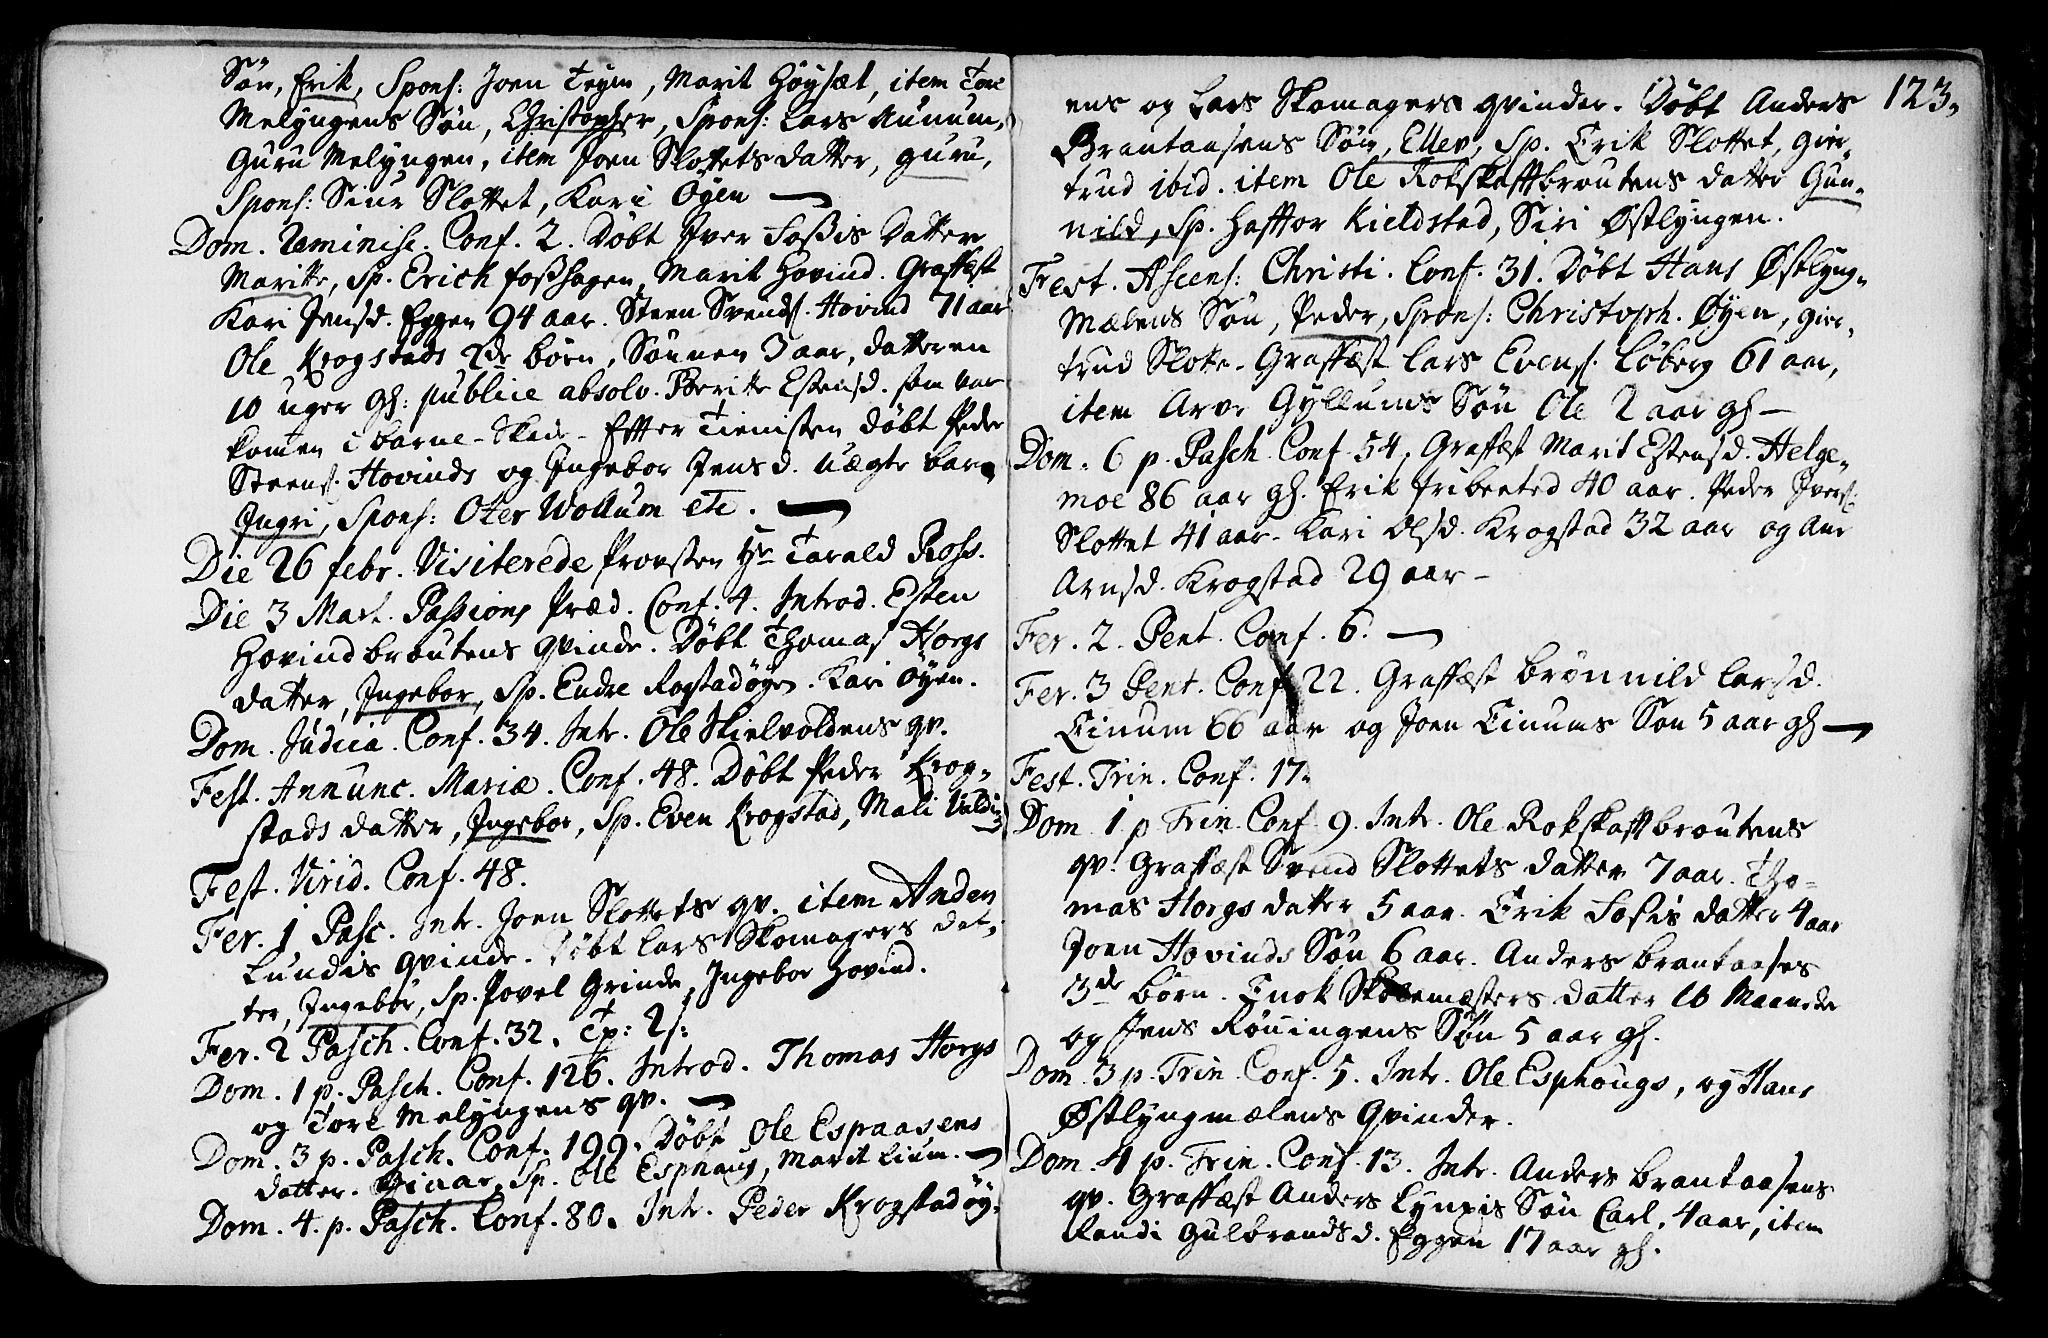 Søn, Erik, Spons: Joen Teigen, Marit Høysæt, item Tore
Melyngens Søn, Christopher, Spons: Lars Aunum,
Guru Melyngen, item Joen Slottets datter, guru,
Spons: Siur Slottet, Kari Øyen —
Dom. Reminisc. Conf. 2. Døbt Iver Foßis datter
Maritte, Sp. Erich foßhagen, Marit Hovind. Graffæst
Kari Jensd. Eggen 94 aar. Steen Svends. Hovind 71 aar
Ole Krogstads 2de børn, Sønnen 3 aar, datteren
10 uger gl: publice absolv. Beritte Estensd. som var
komen i barne-Skade - Effter Tienisten døbt Peder
Steens. Hovinds og Ingebor Jensd. uægte barn
Ingri, Spons: Oter Wollum etc. —
Die 26 febr. Visiterede Provsten Hr Tarald Rofs.
Die 3 Mart. Passions Præd. Conf. 4. Introd. Esten
Hovindbroutens qvinde. Døbt Thomas Horgs
datter, Ingebor, Sp. Endre Rogstadøyen. Kari Øyen.
Dom. Judica. Conf. 34. Intr. Ole Skielvoldens qv.
Fest. Annunc. Mariæ. Conf. 48. Døbt Peder Krog-
stads datter, Ingebor, Sp. Even Krogstad, Mali
Fest. Virid. Conf. 48.
Fer. 1 Pasc. Intr. Joen Slottets qv. item Anders
Lundis qvinde. Døbt Lars Skomagers dat-
ter, Ingebor, Sp. Povel Grinde, Ingebor Hovind.
Fer. 2 Pasch. Conf. 32.
Dom. 1 p. Pasch. Conf. 126. Introd. Thomas Horgs
og Tore Melyngens qv. —
Dom. 3 p. Pasch. Conf. 199. Døbt Ole Espaasens
datter. Sp. Ole Esphaug, Marit Lium. —
Dom. 4. p. Pasch. Conf. 80. Intr. Peder Krogstadøy-
123.
ens og Lars Skomagers qvinder. Døbt Anders
Brantaasens Søn, Ellev, Sp. Erik Slottet, gier-
trud ibid. item Ole Rokskafftbroutens datter Gun-
nild, Sp. Hafftor Kieldstad, Siri Østlyngen.
Fest. Ascens: Christi. Conf. 31. Døbt Hans Østlyng-
Mælens Søn, Peder, Spons: Christoph. Øyen, gier-
trud Slotte. Graffæst Lars Evens. Løberg 61 aar,
item Arve Gyllums Søn Ole 2 aar gl —
Dom. 6 p. Pasch. Conf. 54, Graffæst Marit Estensd. Helge-
moe 86 aar gl. Erik fribeeted 40 aar. Peder Ivers:
Slottet 41 aar. Kari Olsd. Krogstad 32 aar og Ane
Arnsd. Krogstad 29 aar —
Fer. 2. Pent. Conf. 6. —
Fer. 3 Pent. Conf. 22. Graffæst Brønnild Larsd.
Tinum 66 aar og Joen Tinums Søn 5 aar gl —
Fest. Trin. Conf. 17.
Dom. 1 p Trin. Conf. 9. Intr. Ole Rokskafftbroutens
qv. Graffæst Svend Slottets datter 7 aar. Tho-
mas Horgs datter 5 aar. Erik Fossis datter 4 aar
Joen Hovinds Søn 6 aar. Anders Brantaases
3de børn. Enok Skolemæsters datter 10 Maaneder
og Jens Røningens Søn 5 aar gl.
Dom. 3 p. Trin. Conf. 5. Intr. Ole Esphougs, og Hans
Østlyngmælens Qvinder.
Dom. 4 p. Trin. Conf. 13. Intr. Anders Brantaasens
qv. Graffæst Anders Lynxis Søn Carl, 4 aar, item
Randi Gulbrandsd. Eggen 17 aar gl.